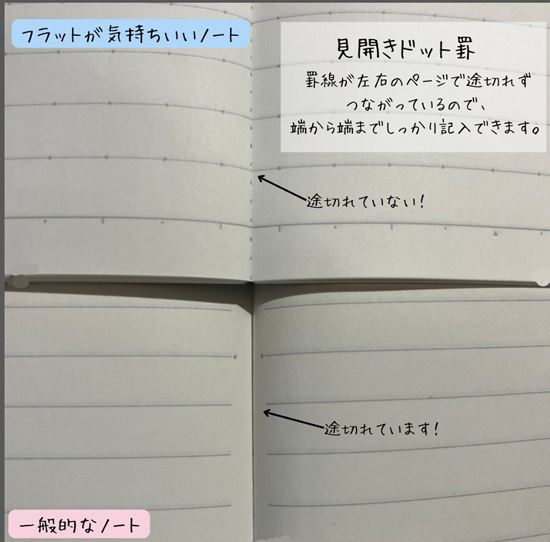 フラットが気持ちいいノート
見開きドット罫
罫線が左右のページで途切れず
つながっているので、
端から端までしっかり記入できます。
途切れていない!
途切れています!
一般的なノート